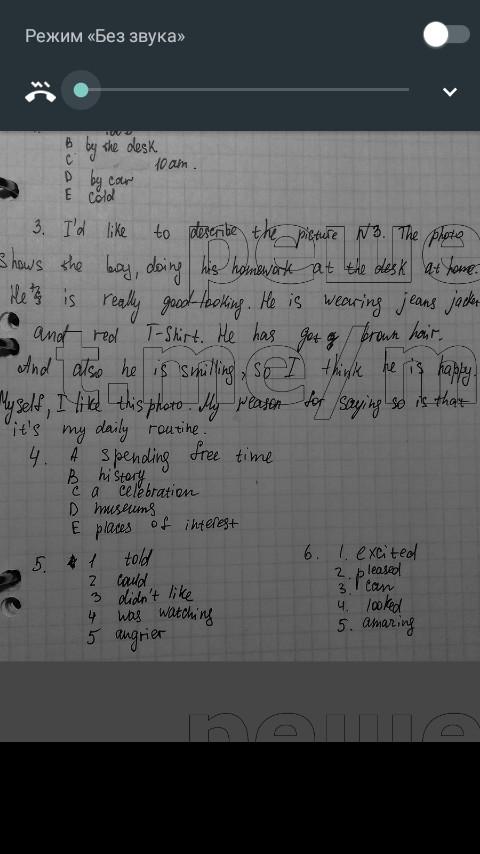 Режим «Без звука»
B by the desk
C 10 am.
D by car
E cold
3. I'd like to describe the picture №3. The photo
shows the boy, doing his homework at the desk at home.
He is really good-looking. He is wearing jeans jacket
and red T-Shirt. He has got brown hair.
And also he is smilling, so I think he is happy.
Myself, I like this photo. My reason for saying so is that
it's my daily routine.
4. A spending free time
B history
C a celebration
D museums
E places of interest
5. 1 told
2 could
3 didn't like
4 was watching
5 angrier
6. 1. excited
2. pleased
3. can
4. looked
5. amazing
реше
t.me/m
реше